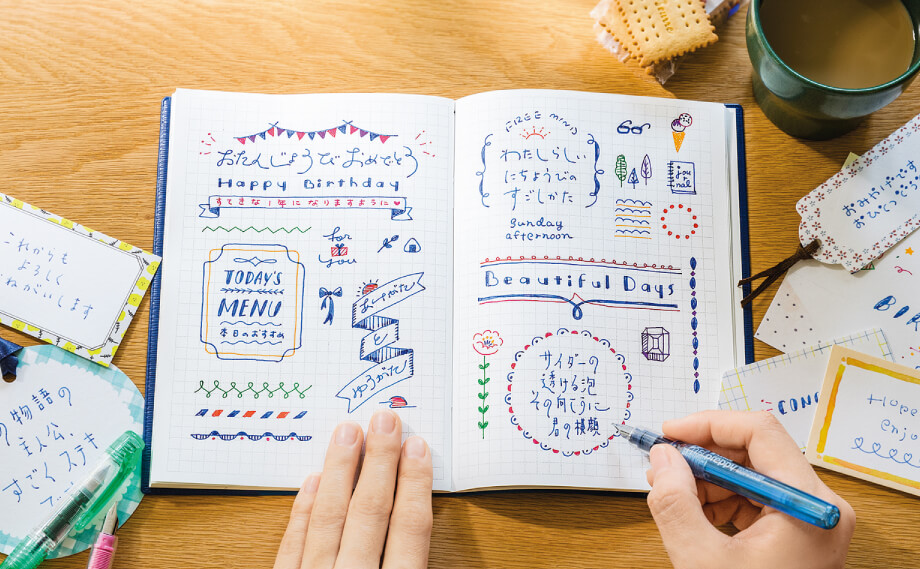 おたんじょうび おめでとう
Happy Birthday
すてきな1年になりますように
for
you
TODAY'S
MENU
本日のおすすめ
あさがた
と
ゆうがた
FREE MIND
わたしらしい
にちようびの
すごしかた
sunday
afternoon
jou
r
nal
Beautiful Days
サイダーの
透ける泡
その向こうに
君の横顔
preppy
これからも
よろしく
おねがいします
物語の
主人公
すごくステキ
おみやげです
おひとつ
BIR
CON
Hope
enjo